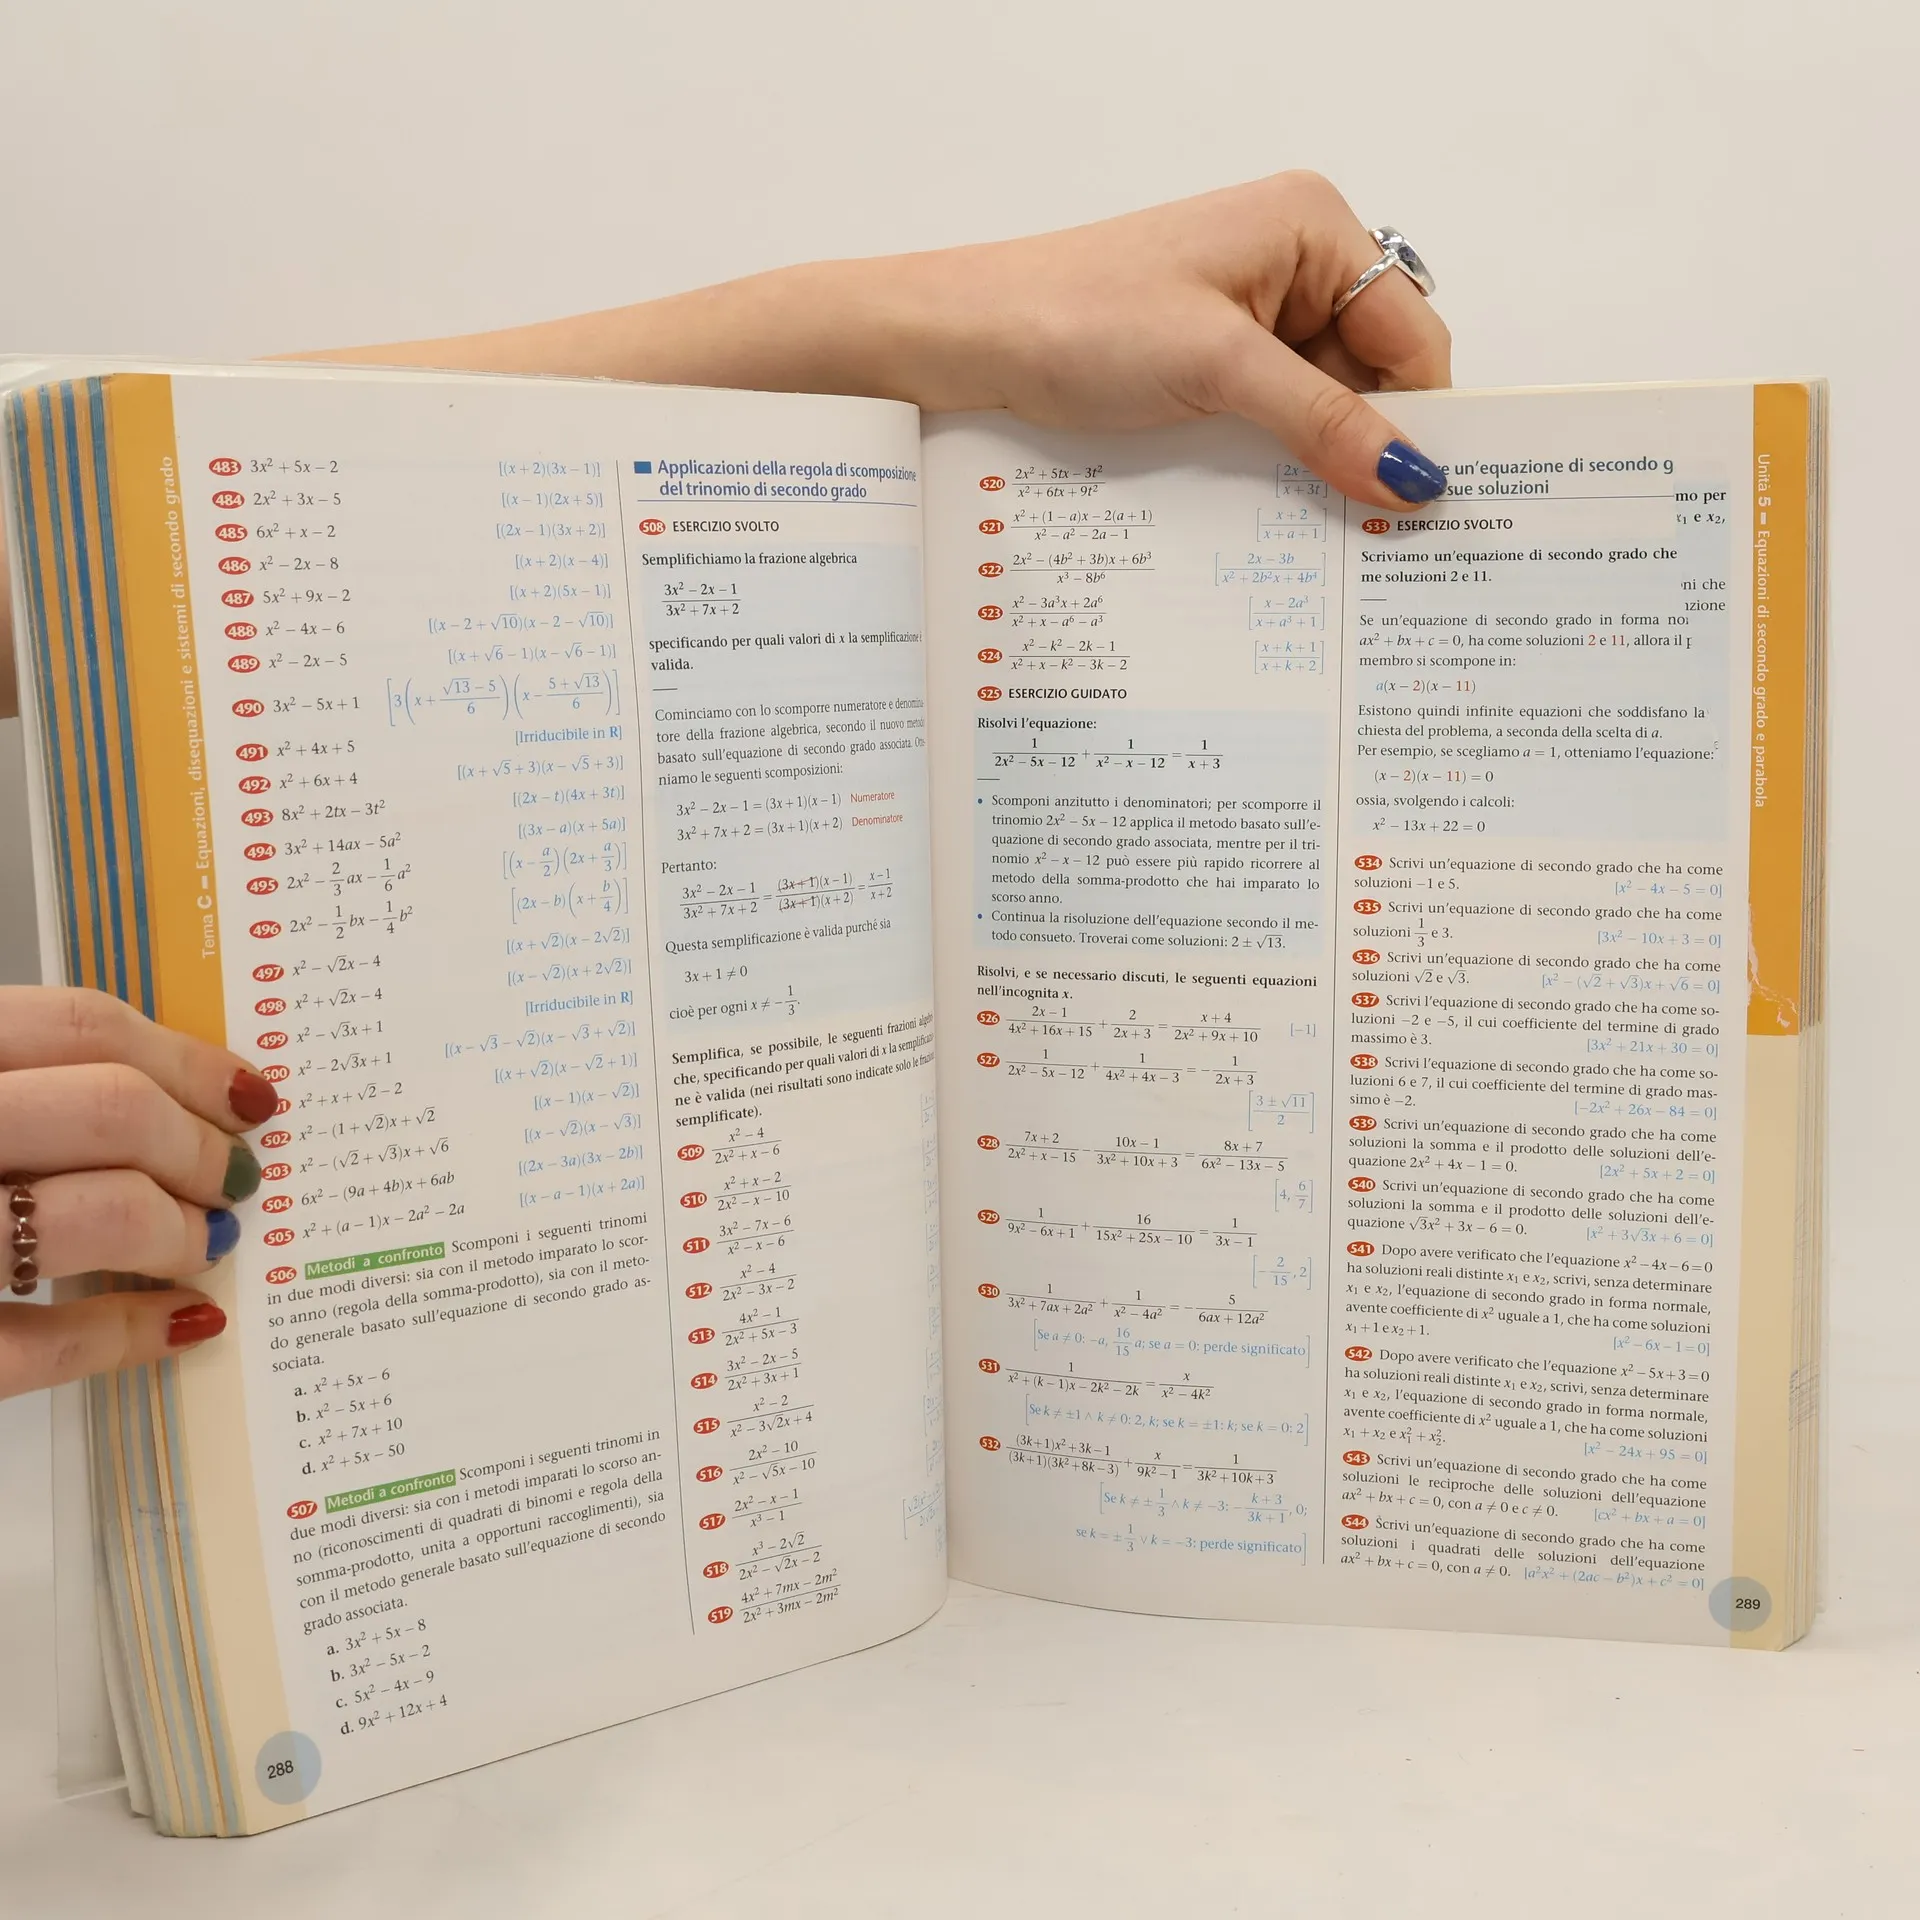 Tema C - Equazioni, disequazioni e sistemi di secondo grado
483 3x² + 5x − 2 [(x + 2)(3x − 1)]
484 2x² + 3x − 5 [(x − 1)(2x + 5)]
485 6x² + x − 2 [(2x − 1)(3x + 2)]
486 x² − 2x − 8 [(x + 2)(x − 4)]
487 5x² + 9x − 2 [(x + 2)(5x − 1)]
488 x² − 4x − 6 [(x − 2 + √10)(x − 2 − √10)]
489 x² − 2x − 5 [(x + √6 − 1)(x − √6 − 1)]
490 3x² − 5x + 1 [3(x + (√13 − 5)/6)(x − (5 + √13)/6)]
491 x² + 4x + 5 [Irriducibile in R]
492 x² + 6x + 4 [(x + √5 + 3)(x − √5 + 3)]
493 8x² + 2tx − 3t² [(2x − t)(4x + 3t)]
494 3x² + 14ax − 5a² [(3x − a)(x + 5a)]
495 2x² − 2/3 ax − 1/6 a² [(x − a/2)(2x + a/3)]
496 2x² − 1/2 bx − 1/4 b² [(2x − b)(x + b/4)]
497 x² − √2x − 4 [(x + √2)(x − 2√2)]
498 x² + √2x − 4 [(x − √2)(x + 2√2)]
499 x² − √3x + 1 [Irriducibile in R]
500 x² − 2√3x + 1 [(x − √3 − √2)(x − √3 + √2)]
x² + x + √2 − 2 [(x + √2)(x − √2 + 1)]
502 x² − (1 + √2)x + √2 [(x − 1)(x − √2)]
503 x² − (√2 + √3)x + √6 [(x − √2)(x − √3)]
504 6x² − (9a + 4b)x + 6ab [(2x − 3a)(3x − 2b)]
505 x² + (a − 1)x − 2a² − 2a [(x − a − 1)(x + 2a)]
506 Metodi a confronto Scomponi i seguenti trinomi
in due modi diversi: sia con il metodo imparato lo scor-
so anno (regola della somma-prodotto), sia con il meto-
do generale basato sull'equazione di secondo grado as-
sociata.
a. x² + 5x − 6
b. x² − 5x + 6
c. x² + 7x + 10
d. x² + 5x − 50
507 Metodi a confronto Scomponi i seguenti trinomi in
due modi diversi: sia con i metodi imparati lo scorso an-
no (riconoscimenti di quadrati di binomi e regola della
somma-prodotto, unita a opportuni raccoglimenti), sia
con il metodo generale basato sull'equazione di secondo
grado associata.
a. 3x² + 5x − 8
b. 3x² − 5x − 2
c. 5x² − 4x − 9
d. 9x² + 12x + 4
288
Applicazioni della regola di scomposizione
del trinomio di secondo grado
508 ESERCIZIO SVOLTO
Semplifichiamo la frazione algebrica
(3x² − 2x − 1)/(3x² + 7x + 2)
specificando per quali valori di x la semplificazione è
valida.
Cominciamo con lo scomporre numeratore e denomina-
tore della frazione algebrica, secondo il nuovo metodo
basato sull'equazione di secondo grado associata. Otte-
niamo le seguenti scomposizioni:
3x² − 2x − 1 = (3x + 1)(x − 1) Numeratore
3x² + 7x + 2 = (3x + 1)(x + 2) Denominatore
Pertanto:
(3x² − 2x − 1)/(3x² + 7x + 2) = ((3x + 1)(x − 1))/((3x + 1)(x + 2)) = (x − 1)/(x + 2)
Questa semplificazione è valida purché sia
3x + 1 ≠ 0
cioè per ogni x ≠ −1/3.
Semplifica, se possibile, le seguenti frazioni algebri-
che, specificando per quali valori di x la semplificazio-
ne è valida (nei risultati sono indicate solo le frazioni
semplificate).
509 (x² − 4)/(2x² + x − 6)
510 (x² + x − 2)/(2x² − x − 10)
511 (3x² − 7x − 6)/(x² − x − 6)
512 (x² − 4)/(2x² − 3x − 2)
513 (4x² − 1)/(2x² + 5x − 3)
514 (3x² − 2x − 5)/(2x² + 3x + 1)
515 (x² − 2)/(x² − 3√2x + 4)
516 (2x² − 10)/(x² − √5x − 10)
517 (2x² − x − 1)/(x³ − 1)
518 (x³ − 2√2)/(2x² − √2x − 2)
519 (4x² + 7mx − 2m²)/(2x² + 3mx − 2m²)
520 (2x² + 5tx − 3t²)/(x² + 6tx + 9t²) [2x − / x + 3t]
521 (x² + (1 − a)x − 2(a + 1))/(x² − a² − 2a − 1) [(x + 2)/(x + a + 1)]
522 (2x² − (4b² + 3b)x + 6b³)/(x³ − 8b⁶) [(2x − 3b)/(x² + 2b²x + 4b⁴)]
523 (x² − 3a³x + 2a⁶)/(x² + x − a⁶ − a³) [(x − 2a³)/(x + a³ + 1)]
524 (x² − k² − 2k − 1)/(x² + x − k² − 3k − 2) [(x + k + 1)/(x + k + 2)]
525 ESERCIZIO GUIDATO
Risolvi l'equazione:
1/(2x² − 5x − 12) + 1/(x² − x − 12) = 1/(x + 3)
• Scomponi anzitutto i denominatori; per scomporre il
trinomio 2x² − 5x − 12 applica il metodo basato sull'e-
quazione di secondo grado associata, mentre per il tri-
nomio x² − x − 12 può essere più rapido ricorrere al
metodo della somma-prodotto che hai imparato lo
scorso anno.
• Continua la risoluzione dell'equazione secondo il me-
todo consueto. Troverai come soluzioni: 2 ± √13.
Risolvi, e se necessario discuti, le seguenti equazioni
nell'incognita x.
526 (2x − 1)/(4x² + 16x + 15) + 2/(2x + 3) = (x + 4)/(2x² + 9x + 10) [−1]
527 1/(2x² − 5x − 12) + 1/(4x² + 4x − 3) = −1/(2x + 3)
[(3 ± √11)/2]
528 (7x + 2)/(2x² + x − 15) − (10x − 1)/(3x² + 10x + 3) = (8x + 7)/(6x² − 13x − 5)
[4, 6/7]
529 1/(9x² − 6x + 1) + 16/(15x² + 25x − 10) = 1/(3x − 1)
[−2/15, 2]
530 1/(3x² + 7ax + 2a²) + 1/(x² − 4a²) = −5/(6ax + 12a²)
[Se a ≠ 0: −a, 16/15 a; se a = 0: perde significato]
531 1/(x² + (k − 1)x − 2k² − 2k) = x/(x² − 4k²)
[Se k ≠ ±1 ∧ k ≠ 0: 2, k; se k = ±1: k; se k = 0: 2]
532 ((3k+1)x² + 3k − 1)/((3k+1)(3k² + 8k − 3)) + x/(9k² − 1) = 1/(3k² + 10k + 3)
[Se k ≠ ±1/3 ∧ k ≠ −3: −(k + 3)/(3k + 1), 0;
se k = ±1/3 ∨ k = −3: perde significato]
e un'equazione di secondo g
sue soluzioni
mo per
x₁ e x₂,
533 ESERCIZIO SVOLTO
Scriviamo un'equazione di secondo grado che
me soluzioni 2 e 11.
ni che
zione
Se un'equazione di secondo grado in forma no
ax² + bx + c = 0, ha come soluzioni 2 e 11, allora il
membro si scompone in:
a(x − 2)(x − 11)
Esistono quindi infinite equazioni che soddisfano la
chiesta del problema, a seconda della scelta di a.
Per esempio, se scegliamo a = 1, otteniamo l'equazione:
(x − 2)(x − 11) = 0
ossia, svolgendo i calcoli:
x² − 13x + 22 = 0
534 Scrivi un'equazione di secondo grado che ha come
soluzioni −1 e 5. [x² − 4x − 5 = 0]
535 Scrivi un'equazione di secondo grado che ha come
soluzioni 1/3 e 3. [3x² − 10x + 3 = 0]
536 Scrivi un'equazione di secondo grado che ha come
soluzioni √2 e √3. [x² − (√2 + √3)x + √6 = 0]
537 Scrivi l'equazione di secondo grado che ha come so-
luzioni −2 e −5, il cui coefficiente del termine di grado
massimo è 3. [3x² + 21x + 30 = 0]
538 Scrivi l'equazione di secondo grado che ha come so-
luzioni 6 e 7, il cui coefficiente del termine di grado mas-
simo è −2. [−2x² + 26x − 84 = 0]
539 Scrivi un'equazione di secondo grado che ha come
soluzioni la somma e il prodotto delle soluzioni dell'e-
quazione 2x² + 4x − 1 = 0. [2x² + 5x + 2 = 0]
540 Scrivi un'equazione di secondo grado che ha come
soluzioni la somma e il prodotto delle soluzioni dell'e-
quazione √3x² + 3x − 6 = 0. [x² + 3√3x + 6 = 0]
541 Dopo avere verificato che l'equazione x² − 4x − 6 = 0
ha soluzioni reali distinte x₁ e x₂, scrivi, senza determinare
x₁ e x₂, l'equazione di secondo grado in forma normale,
avente coefficiente di x² uguale a 1, che ha come soluzioni
x₁ + 1 e x₂ + 1. [x² − 6x − 1 = 0]
542 Dopo avere verificato che l'equazione x² − 5x + 3 = 0
ha soluzioni reali distinte x₁ e x₂, scrivi, senza determinare
x₁ e x₂, l'equazione di secondo grado in forma normale,
avente coefficiente di x² uguale a 1, che ha come soluzioni
x₁ + x₂ e x₁² + x₂². [x² − 24x + 95 = 0]
543 Scrivi un'equazione di secondo grado che ha come
soluzioni le reciproche delle soluzioni dell'equazione
ax² + bx + c = 0, con a ≠ 0 e c ≠ 0. [cx² + bx + a = 0]
544 Scrivi un'equazione di secondo grado che ha come
soluzioni i quadrati delle soluzioni dell'equazione
ax² + bx + c = 0, con a ≠ 0. [a²x² + (2ac − b²)x + c² = 0]
Unità 5 - Equazioni di secondo grado e parabola
289